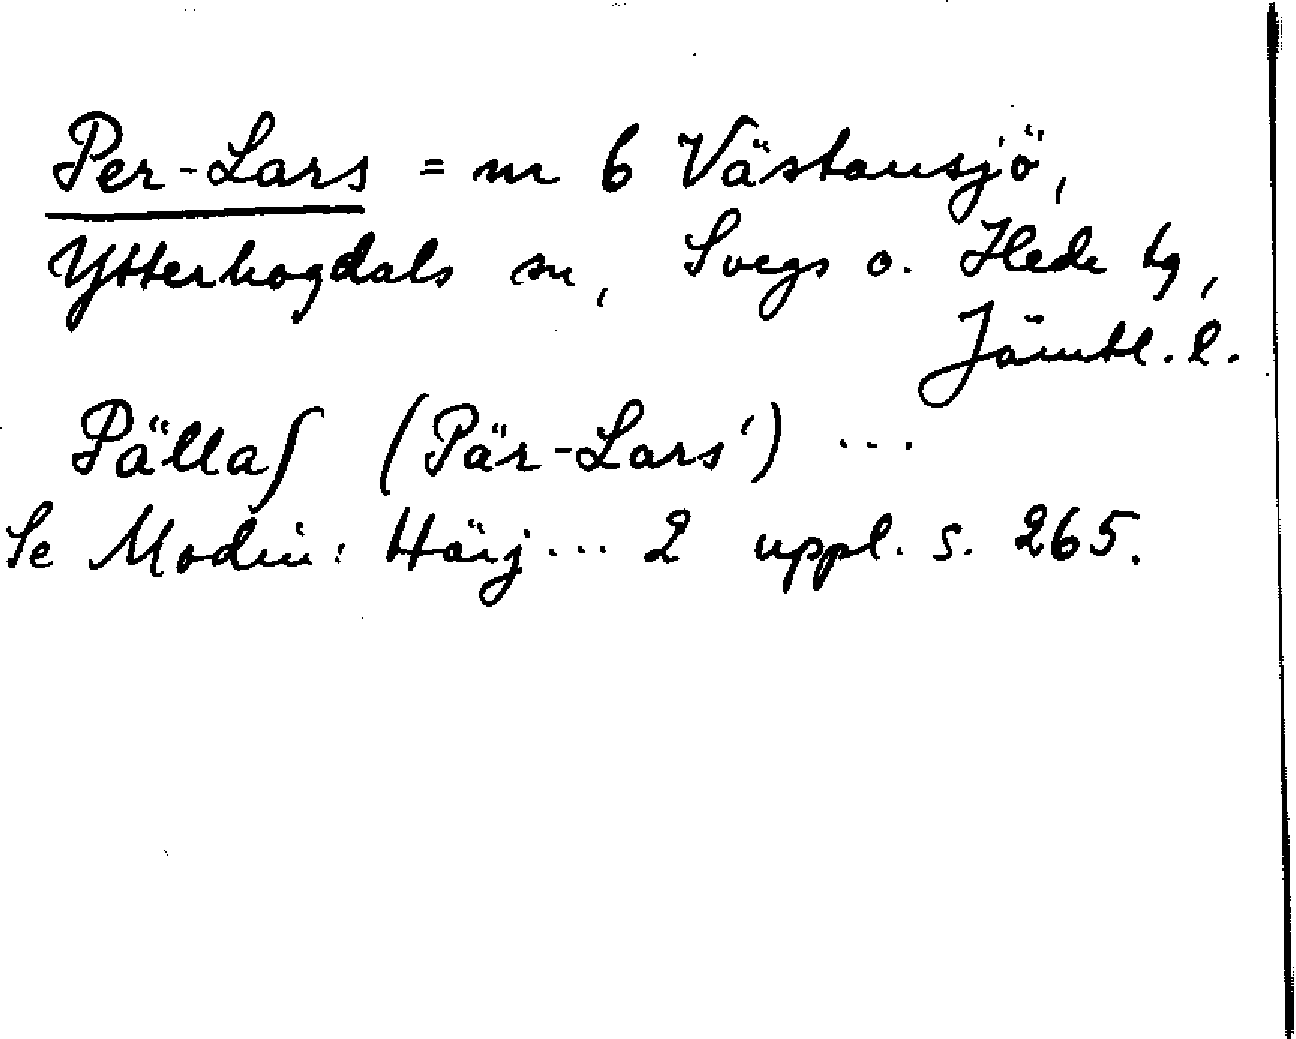 Per-Lars = nr 6 Västansjö,
Ytterhogdals sn, Svegs o. Hede tg,
Jämtl. l.
Pällaʃ (Pär-Lars') ...
Se Modin: Härj... 2 uppl. s. 265.